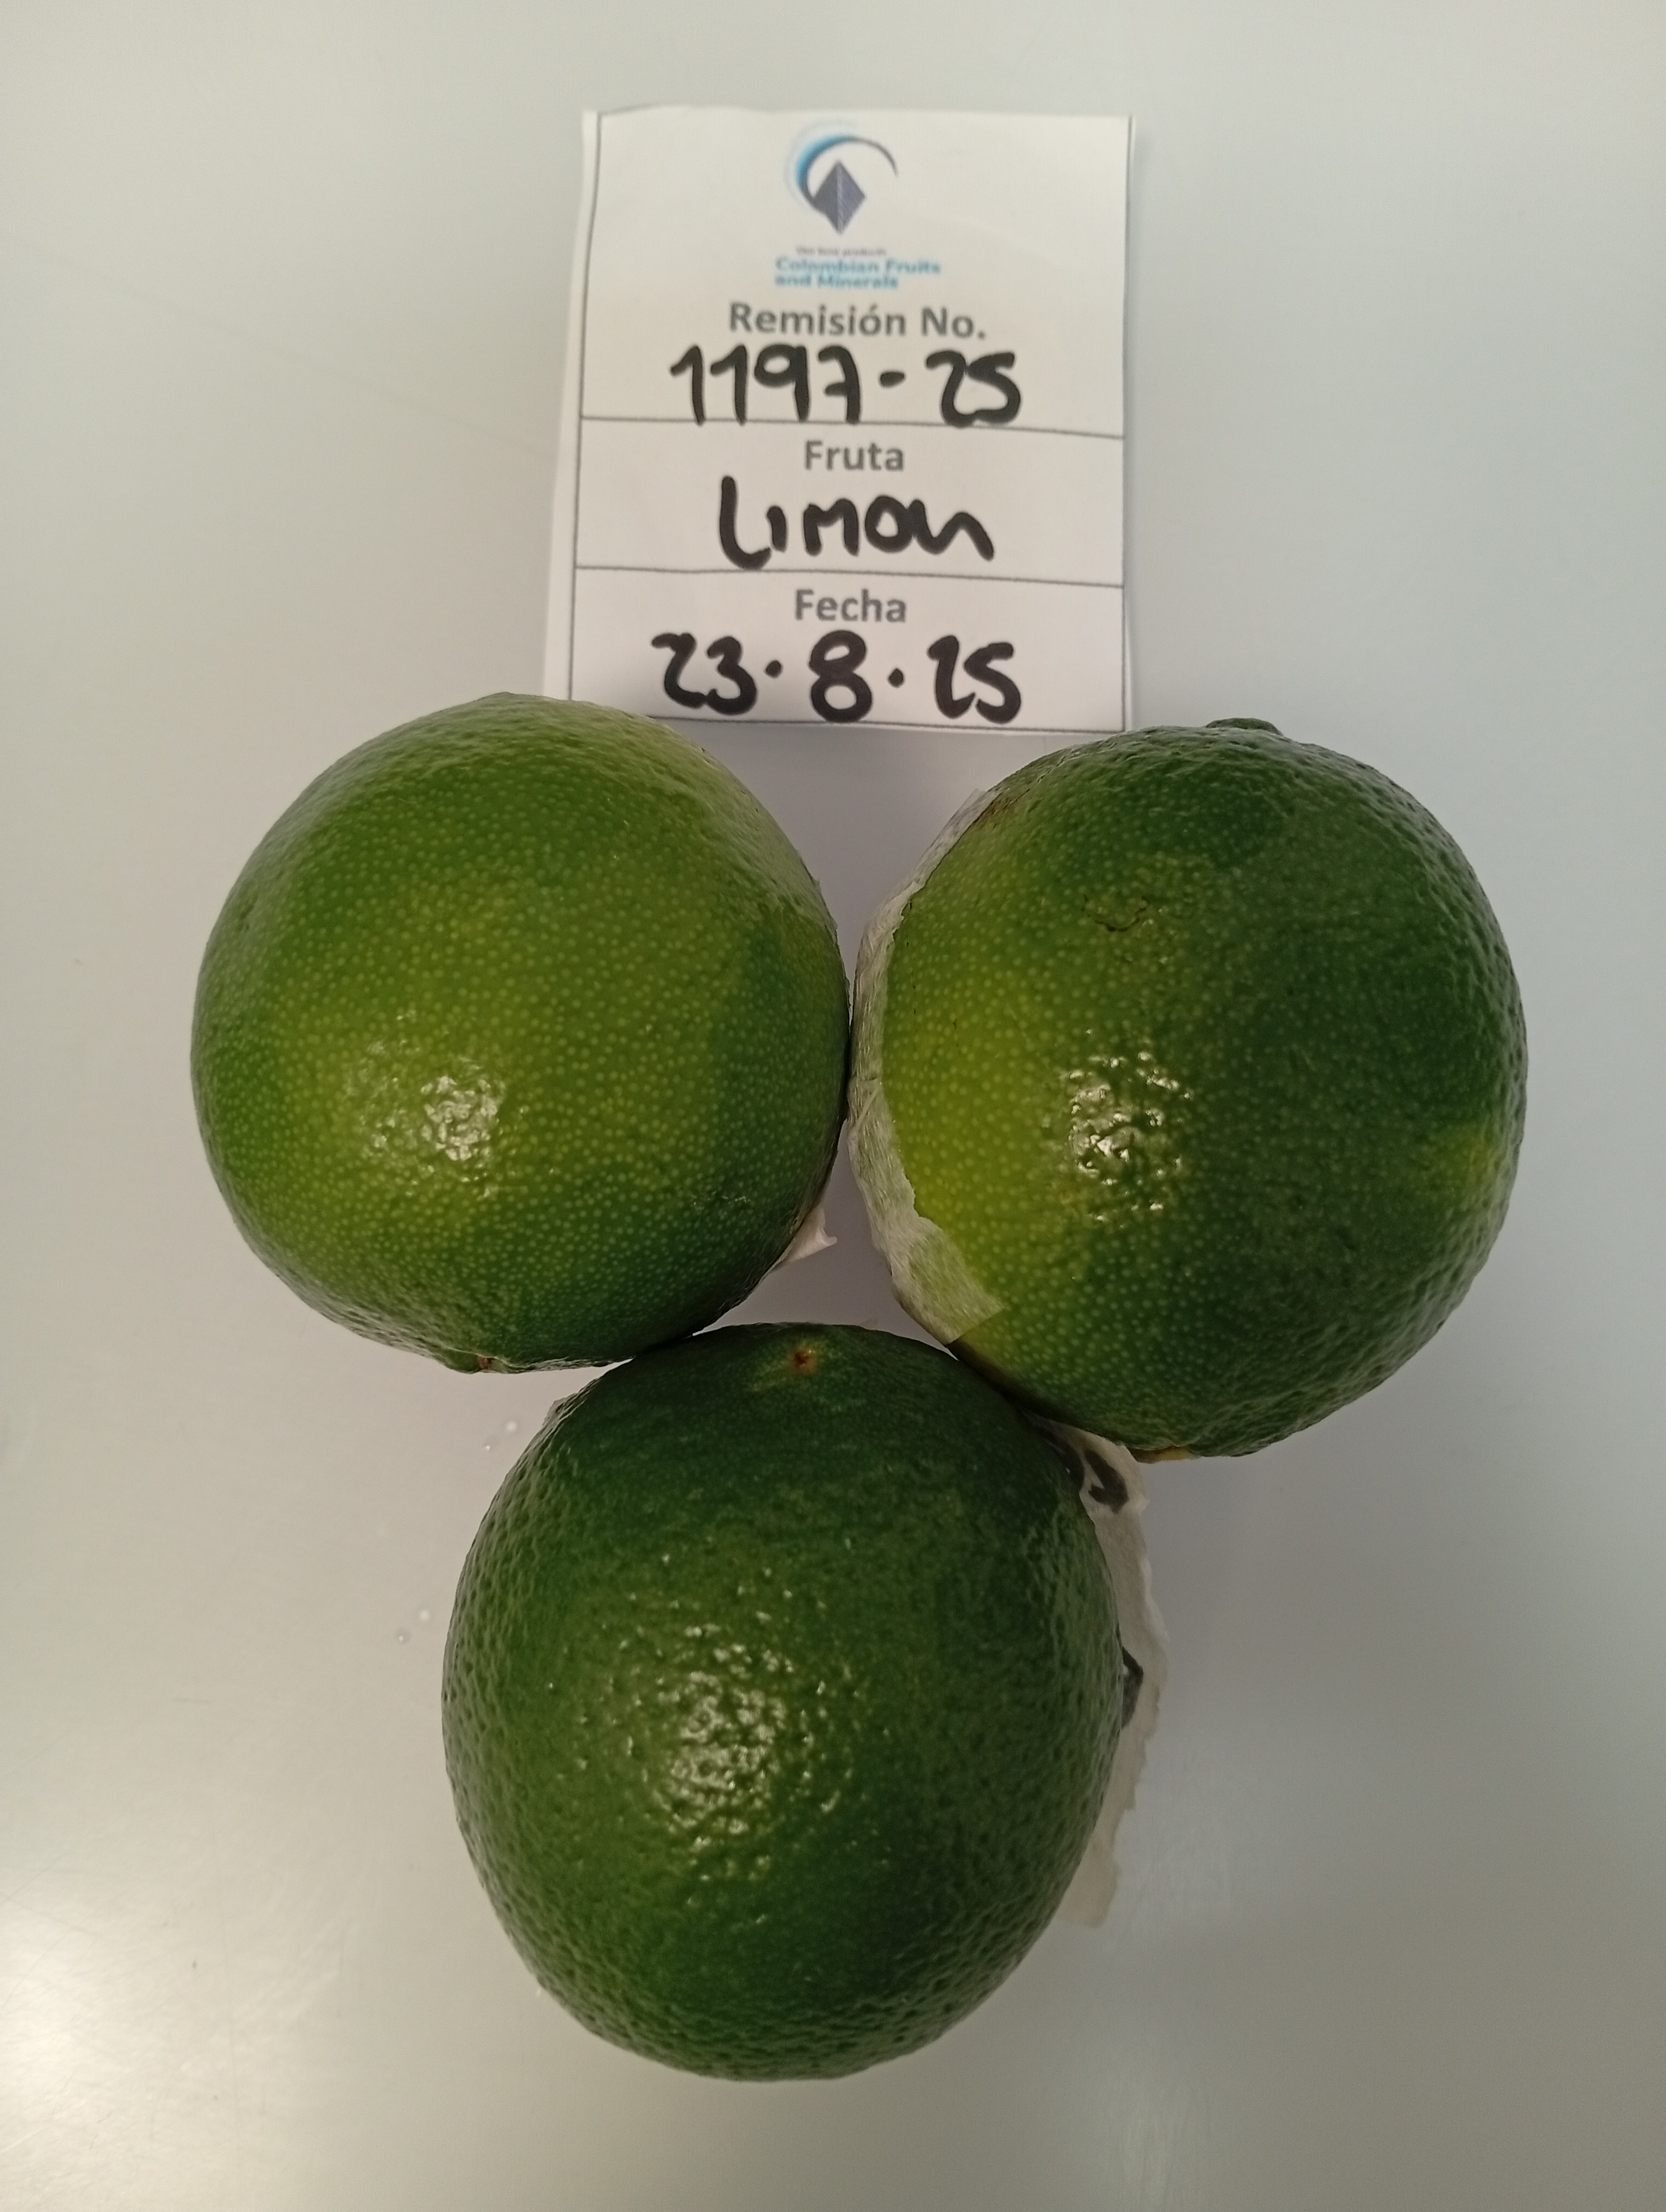 Our best products
Colombian Fruits
and Minerals
Remisión No.
1197-25
Fruta
Limon
Fecha
23.8.25